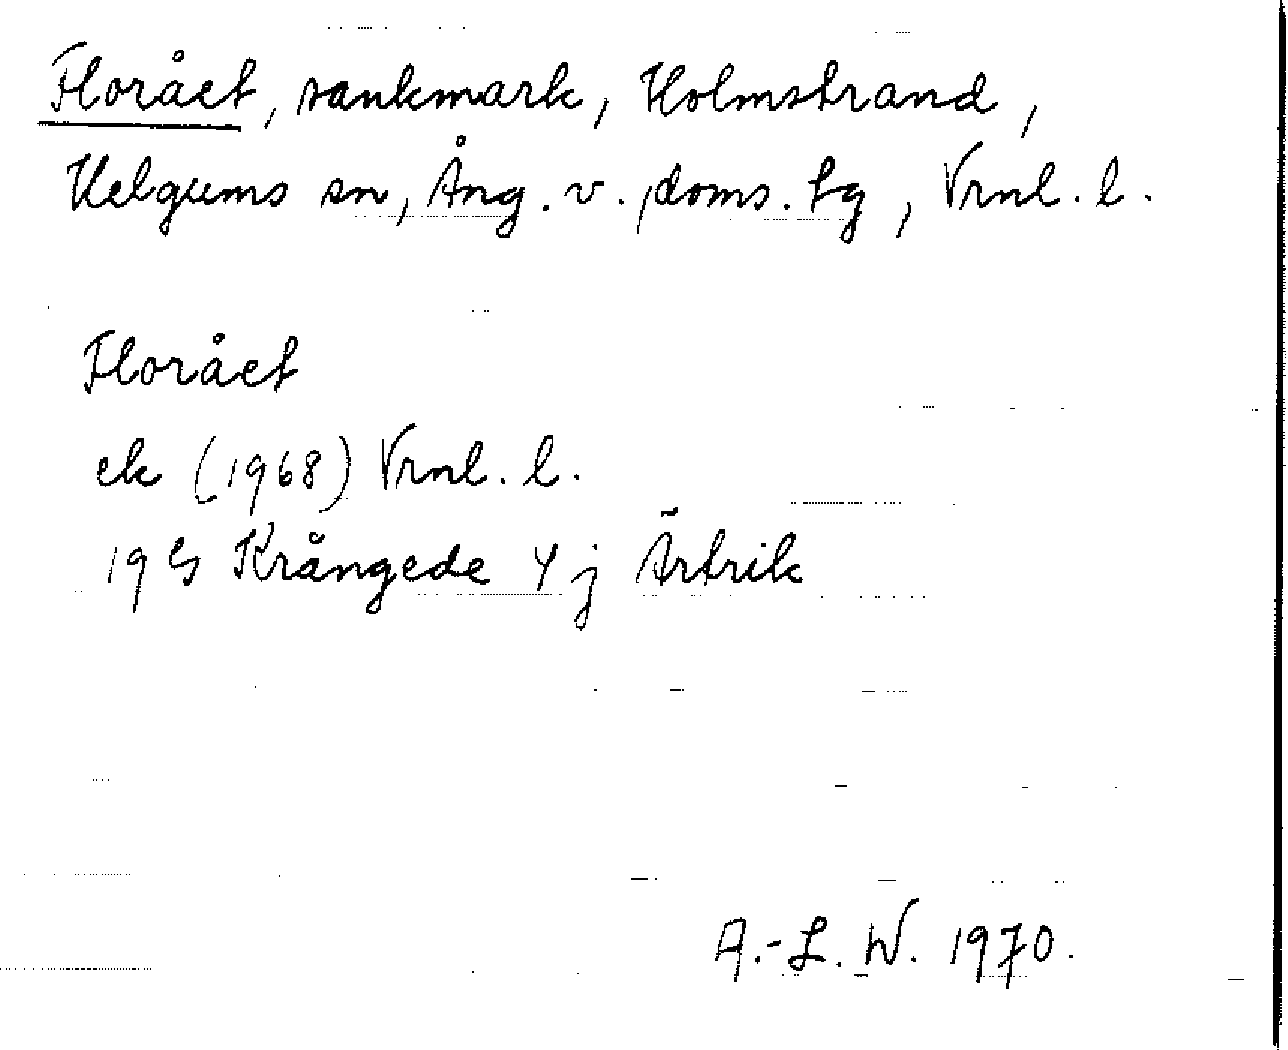 Florået, sankmark, Holmstrand,
Helgums sn, Ång. v. doms. tg, Vrnl. l.
Florået
ek (1968) Vrnl. l.
19 G Krångede 4 j Ärtrik
A.-L. W. 1970.